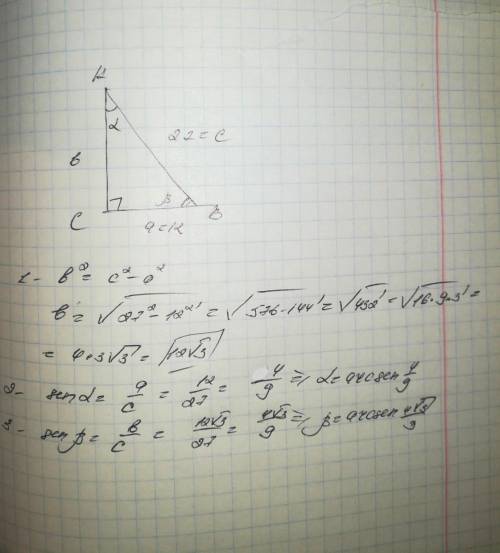 A
α
27 = c
b
C
β
B
a = 12
1 - b² = c² - a²
b = √27² - 12² = √576 - 144 = √432 = √16·9·3 =
= 4·3√3 = 12√3
2 - sen α = a/c = 12/27 = 4/9 ⇒ α = arcsen 4/9
3 - sen β = b/c = 12√3/27 = 4√3/9 ⇒ β = arcsen 4√3/9